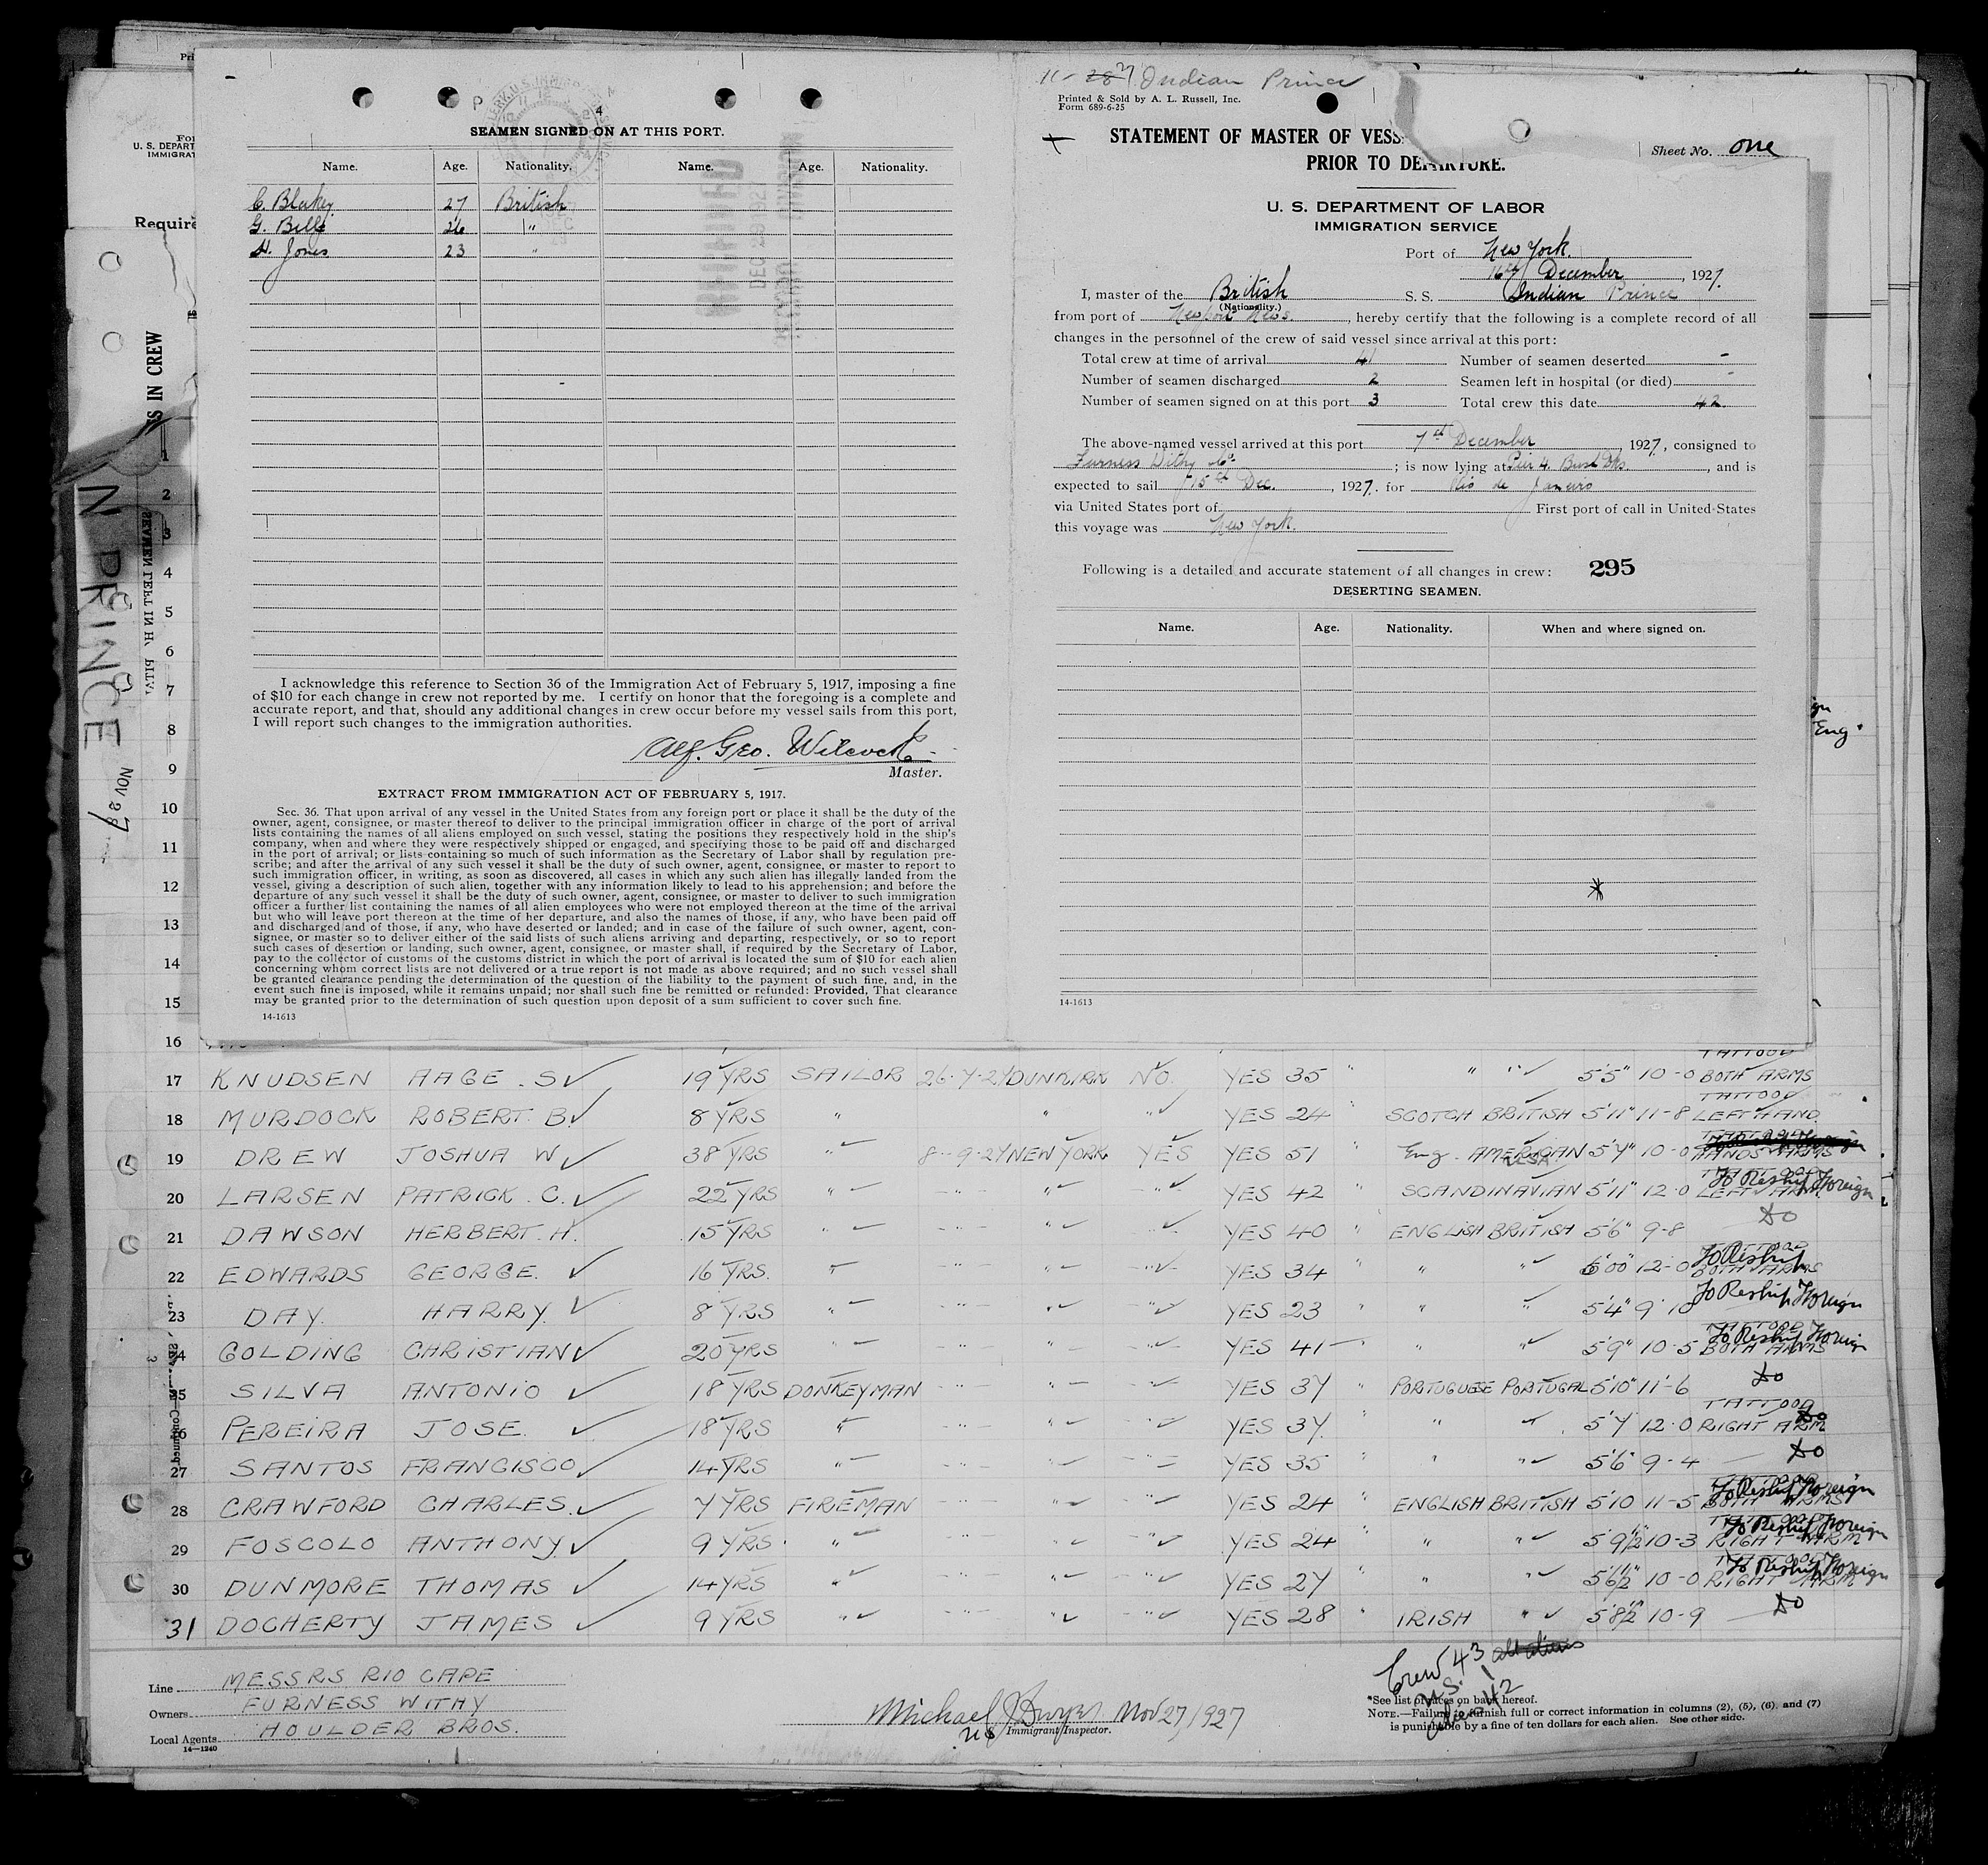 4
SEAMEN SIGNED ON AT THIS PORT.
Name. Age. Nationality. Name. Age. Nationality.
C. Blakey 27 British
G. Bills 26 "
H. Jones 23 "
I acknowledge this reference to Section 36 of the Immigration Act of February 5, 1917, imposing a fine
of $10 for each change in crew not reported by me. I certify on honor that the foregoing is a complete and
accurate report, and that, should any additional changes in crew occur before my vessel sails from this port,
I will report such changes to the immigration authorities.
Alf. Geo. Wilcock
Master.
EXTRACT FROM IMMIGRATION ACT OF FEBRUARY 5, 1917.
Sec. 36. That upon arrival of any vessel in the United States from any foreign port or place it shall be the duty of the
owner, agent, consignee, or master thereof to deliver to the principal immigration officer in charge of the port of arrival
lists containing the names of all aliens employed on such vessel, stating the positions they respectively hold in the ship's
company, when and where they were respectively shipped or engaged, and specifying those to be paid off and discharged
in the port of arrival; or lists containing so much of such information as the Secretary of Labor shall by regulation pre-
scribe; and after the arrival of any such vessel it shall be the duty of such owner, agent, consignee, or master to report to
such immigration officer, in writing, as soon as discovered, all cases in which any such alien has illegally landed from the
vessel, giving a description of such alien, together with any information likely to lead to his apprehension; and before the
departure of any such vessel it shall be the duty of such owner, agent, consignee, or master to deliver to such immigration
officer a further list containing the names of all alien employees who were not employed thereon at the time of the arrival
but who will leave port thereon at the time of her departure, and also the names of those, if any, who have been paid off
and discharged and of those, if any, who have deserted or landed; and in case of the failure of such owner, agent, con-
signee, or master so to deliver either of the said lists of such aliens arriving and departing, respectively, or so to report
such cases of desertion or landing, such owner, agent, consignee, or master shall, if required by the Secretary of Labor,
pay to the collector of customs of the customs district in which the port of arrival is located the sum of $10 for each alien
concerning whom correct lists are not delivered or a true report is not made as above required; and no such vessel shall
be granted clearance pending the determination of the question of the liability to the payment of such fine, and, in the
event such fine is imposed, while it remains unpaid; nor shall such fine be remitted or refunded: Provided, That clearance
may be granted prior to the determination of such question upon deposit of a sum sufficient to cover such fine.
14-1613
Indian Prince
Printed & Sold by A. L. Russell, Inc.
Form 689-6-25
STATEMENT OF MASTER OF VESS
PRIOR TO DEPARTURE.
Sheet No. one
U. S. DEPARTMENT OF LABOR
IMMIGRATION SERVICE
Port of New York.
16th December, 1927.
I, master of the British S. S. Indian Prince
(Nationality.)
from port of Newport News., hereby certify that the following is a complete record of all
changes in the personnel of the crew of said vessel since arrival at this port:
Total crew at time of arrival 41 Number of seamen deserted -
Number of seamen discharged 2 Seamen left in hospital (or died) -
Number of seamen signed on at this port 3 Total crew this date 42.
The above-named vessel arrived at this port 7th December, 1927, consigned to
Furness Withy & Co; is now lying at Pier 4. Bush Dks., and is
expected to sail 15th Dec., 1927. for Rio de Janeiro
via United States port of First port of call in United States
this voyage was New York.
Following is a detailed and accurate statement of all changes in crew: 295
DESERTING SEAMEN.
Name. Age. Nationality. When and where signed on.
14-1613
N PRINCE NOV 27
S IN CREW
Require
1
2
3
4
5
6
7
8
9
10
11
12
13
14
15
16
17 KNUDSEN AAGE. S 19 YRS SAILOR 26.7.27 DUNKIRK NO. YES 35 " " " 5'5" 10-0 TATTOOD BOTH ARMS
18 MURDOCK ROBERT. B. 8 YRS " " " YES 24 " SCOTCH BRITISH 5'11" 11-8 TATTOOD LEFT HAND
19 DREW JOSHUA W 38 YRS " 8-9.27 NEW YORK YES YES 51 " Eng. AMERICAN USA 5'7" 10-0 HANDS ARMS
20 LARSEN PATRICK. C. 22 YRS " -"- " " YES 42 " SCANDINAVIAN 5'11" 12.0 LEFT ARM To Reship Foreign
21 DAWSON HERBERT. H. 15 YRS " -"- " " YES 40 " ENGLISH BRITISH 5'6" 9-8 Do
22 EDWARDS GEORGE. 16 YRS. " -"- " " YES 34 " " " 6'00" 12-0 BOTH ARMS To Reship
23 DAY. HARRY. 8 YRS " -"- " " YES 23 " " " 5'4" 9'10 To Reship Foreign
24 GOLDING CHRISTIAN 20 YRS " -"- " " YES 41 " " " 5'9" 10.5 TATTOOD BOTH ARMS To Reship Foreign
25 SILVA ANTONIO 18 YRS DONKEYMAN -"- " " YES 37 " PORTUGUESE PORTUGAL 5'10" 11'-6 Do
26 PEREIRA JOSE. 18 YRS " -"- " " YES 37. " " " 5'7 12.0 TATTOOD RIGHT ARM Do
27 SANTOS FRANCISCO 14 YRS " -"- " " YES 35 " " " 5'6" 9-4 Do
28 CRAWFORD CHARLES. 7 YRS FIREMAN -"- " " YES 24 " ENGLISH BRITISH 5'10 11-5 BOTH ARMS To Reship Foreign
29 FOSCOLO ANTHONY 9 YRS. " -"- " " YES 24 " " " 5'9½" 10-3 RIGHT ARM To Reship Foreign
30 DUNMORE THOMAS 14 YRS " -"- " " YES 27 " " " 5'6½" 10-0 RIGHT ARM To Reship Foreign
31 DOCHERTY JAMES 9 YRS " -"- " " YES 28 " IRISH " 5'8½" 10-9 Do
Crew 43
U.S. 1
aliens 42
Line MESSRS RIO CAPE
Owners FURNESS WITHY
Local Agents HOULDER BROS.
14-1240
Michael J Dwyer Nov 27/1927
US Immigrant Inspector.
*See list of races on back hereof.
NOTE.—Failure to furnish full or correct information in columns (2), (5), (6), and (7)
is punishable by a fine of ten dollars for each alien. See other side.